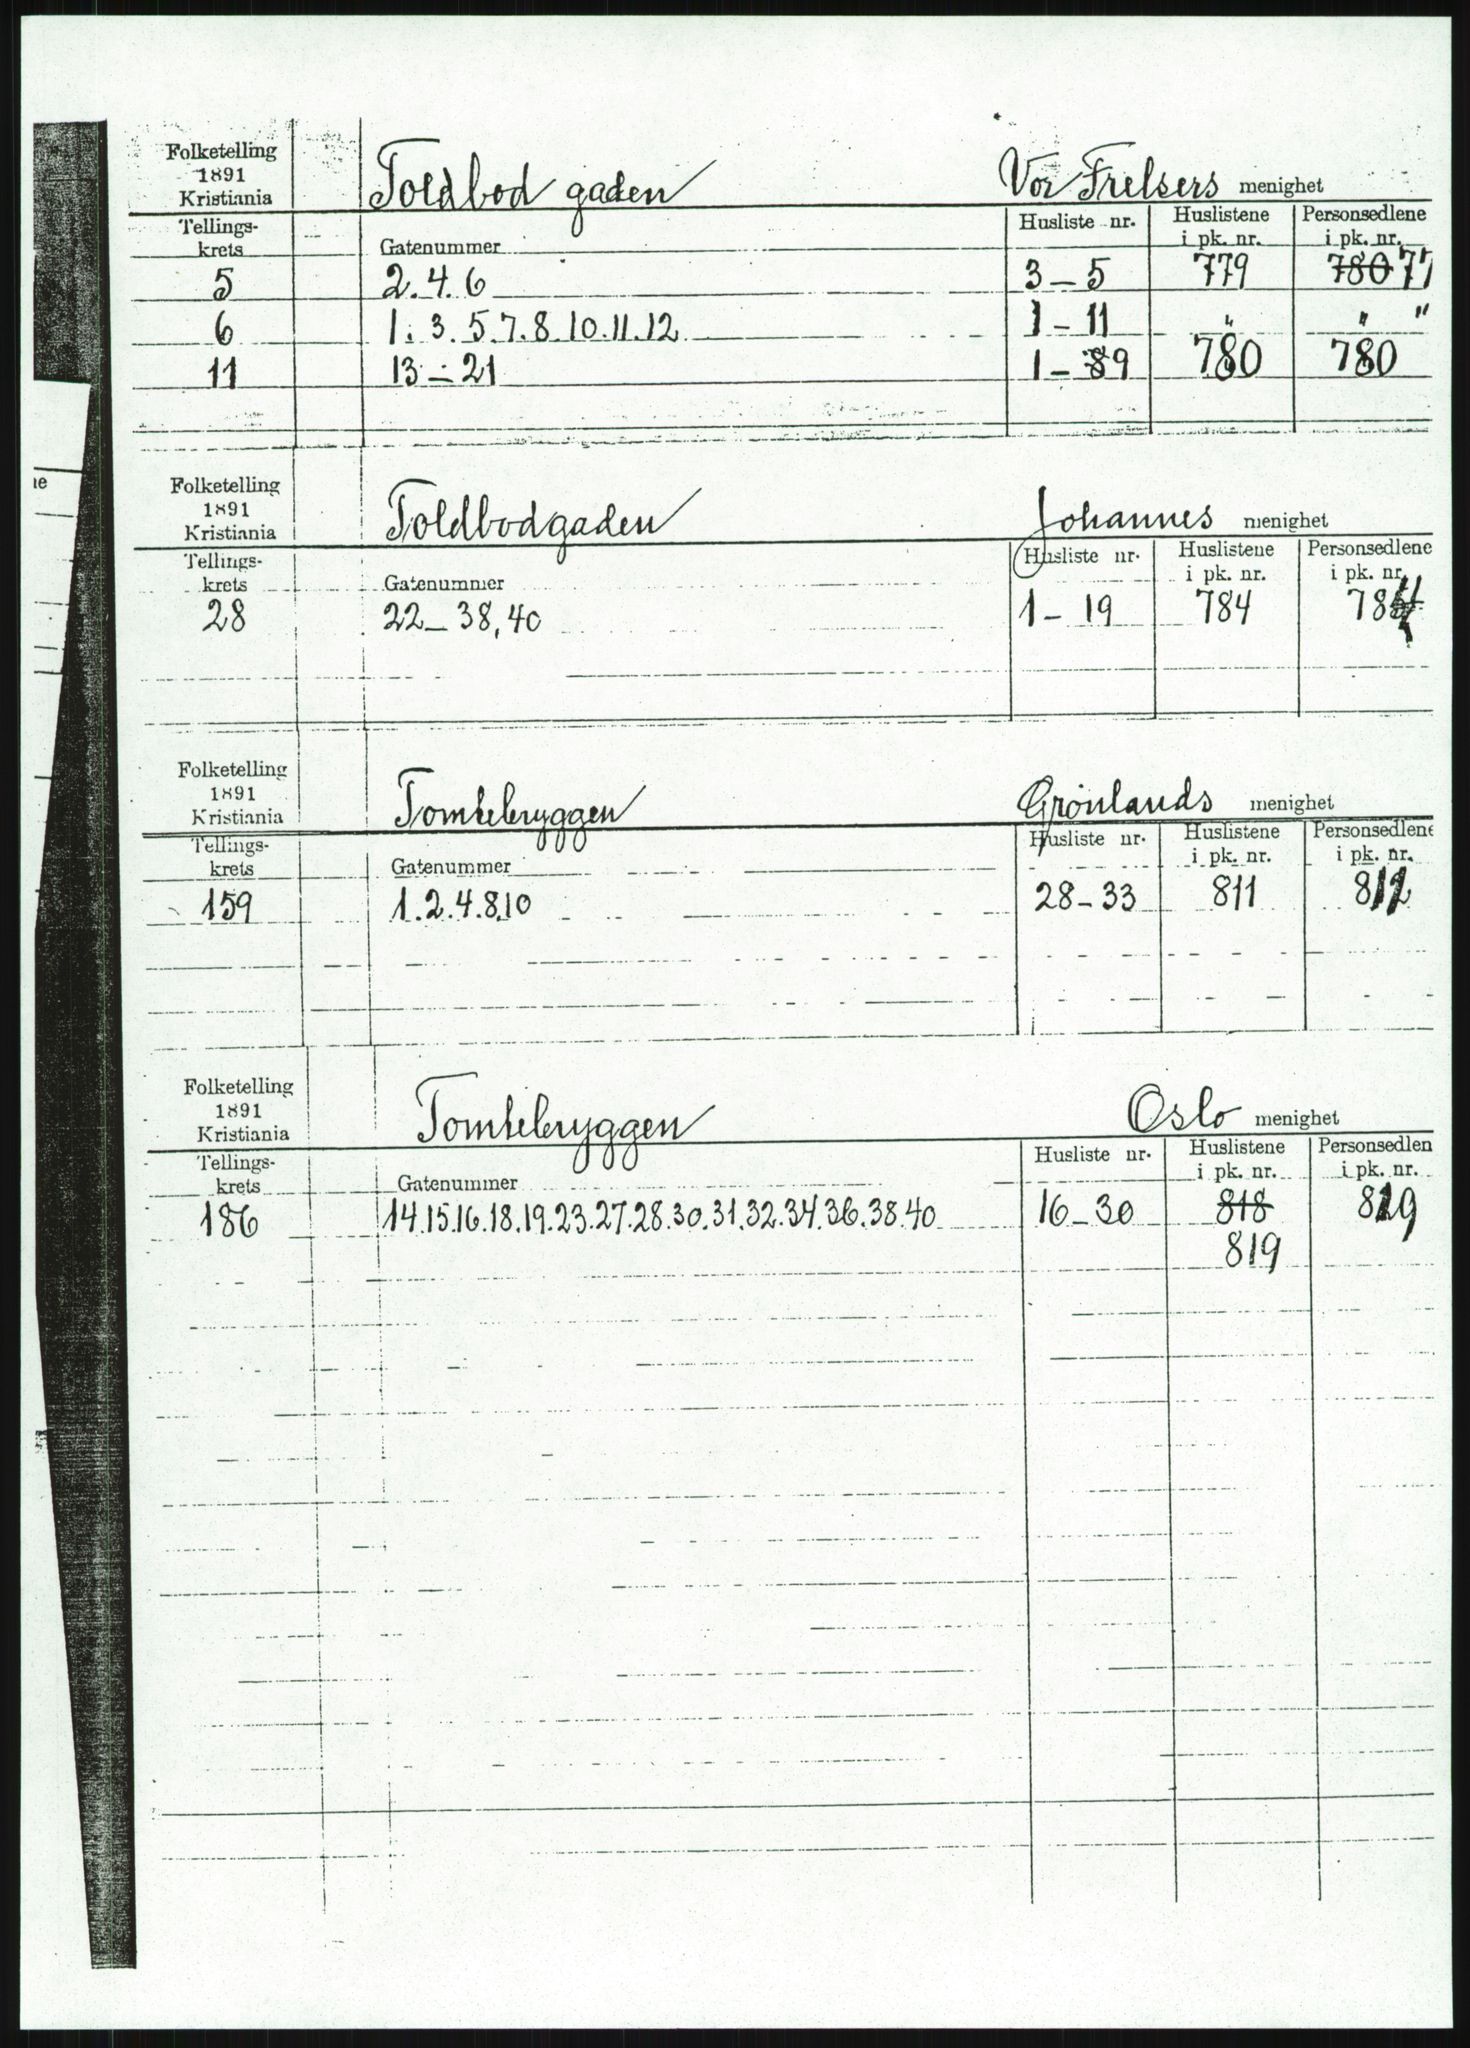 Folketelling
1891
Kristiania
Toldbod gaden
Vor Frelsers menighet
Tellings-krets Gatenummer Husliste nr. Huslistene i pk. nr. Personsedlene i pk. nr.
5 2.4.6 3 – 5 779 780 77
6 1.3.5.7.8.10.11.12 1 – 11 " " "
11 13 – 21 1 – 9 780 780
ne
Folketelling
1891
Kristiania
Toldbodgaden
Johannes menighet
Tellings-krets Gatenummer Husliste nr. Huslistene i pk. nr. Personsedlene i pk. nr.
28 22 – 38, 40 1 – 19 784 784
Folketelling
1891
Kristiania
Tomtebryggen
Grønlands menighet
Tellings-krets Gatenummer Husliste nr. Huslistene i pk. nr. Personsedlene i pk. nr.
159 1.2.4.8.10 28 – 33 811 812
Folketelling
1891
Kristiania
Tomtebryggen
Oslo menighet
Tellings-krets Gatenummer Husliste nr. Huslistene i pk. nr. Personsedlen i pk. nr.
186 14.15.16.18.19.23.27.28.30.31.32.34.36.38.40 16 – 30 818 819
819